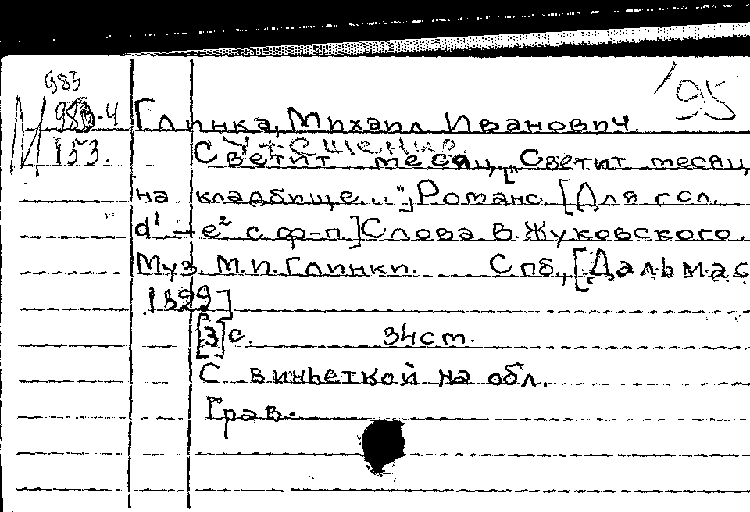 985
'95
М 983-4 Глинка, Михаил Иванович
153. Утешение.
Светит месяц, ["Светит месяц
на кладбище..."] Романс. [Для гол.
d¹ – e² с ф-п.] Слова В. Жуковского.
Муз. М.И. Глинки. Спб., [Дальмас
1899]
[3] с. 34 cm.
С виньеткой на обл.
Грав.